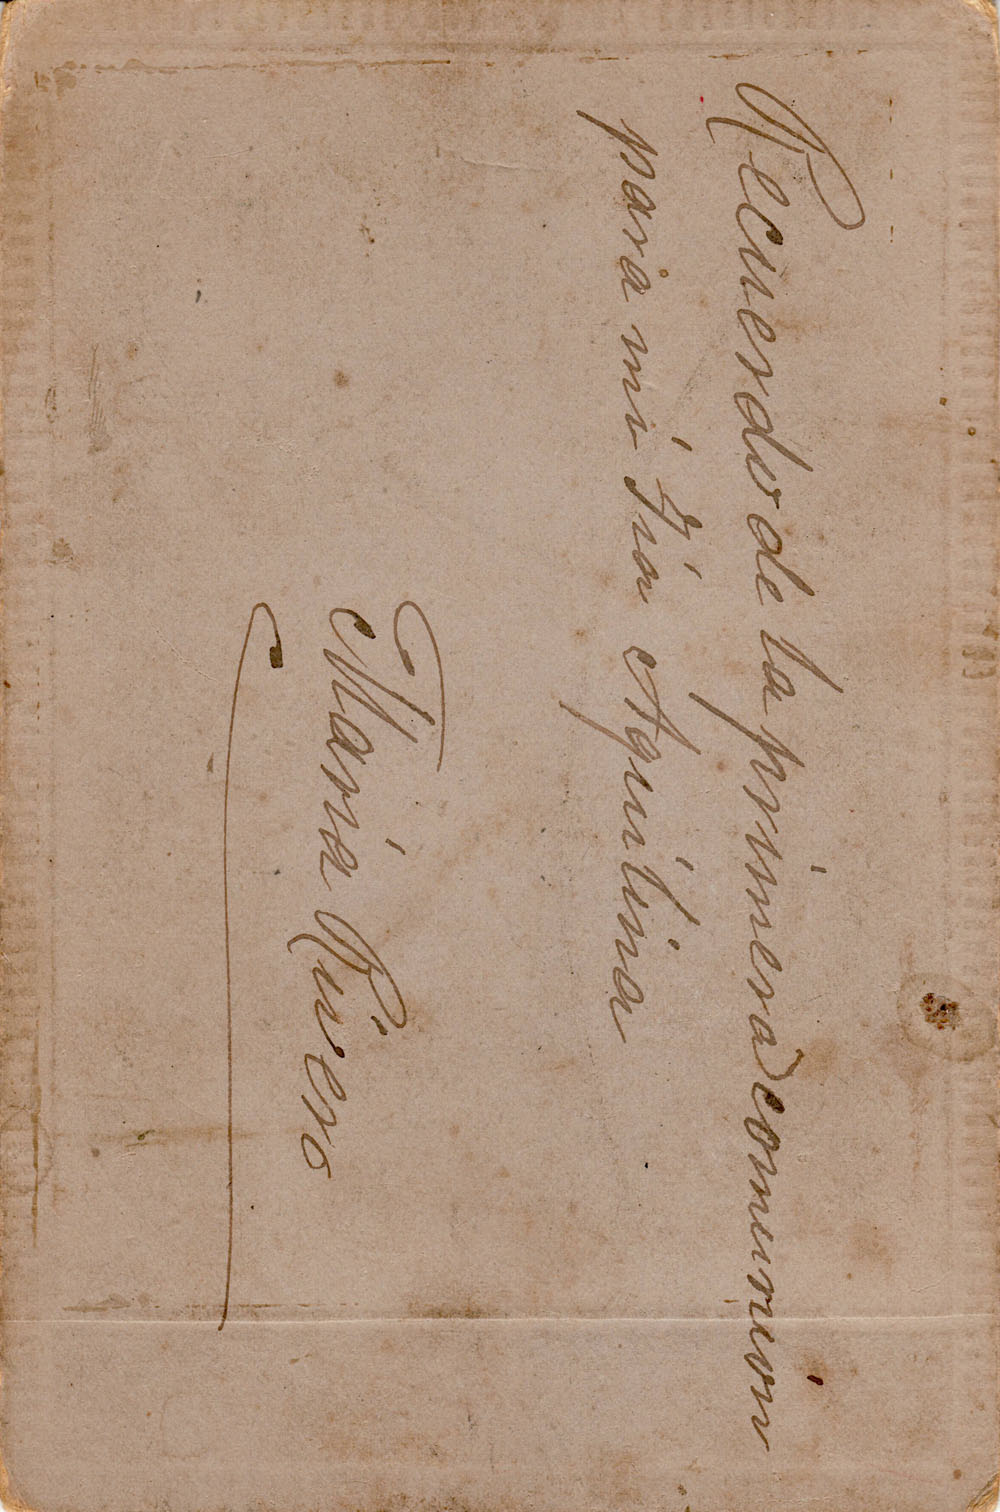 Recuerdo de la primera comunión
para mi Tía Aquilina
María Rivero